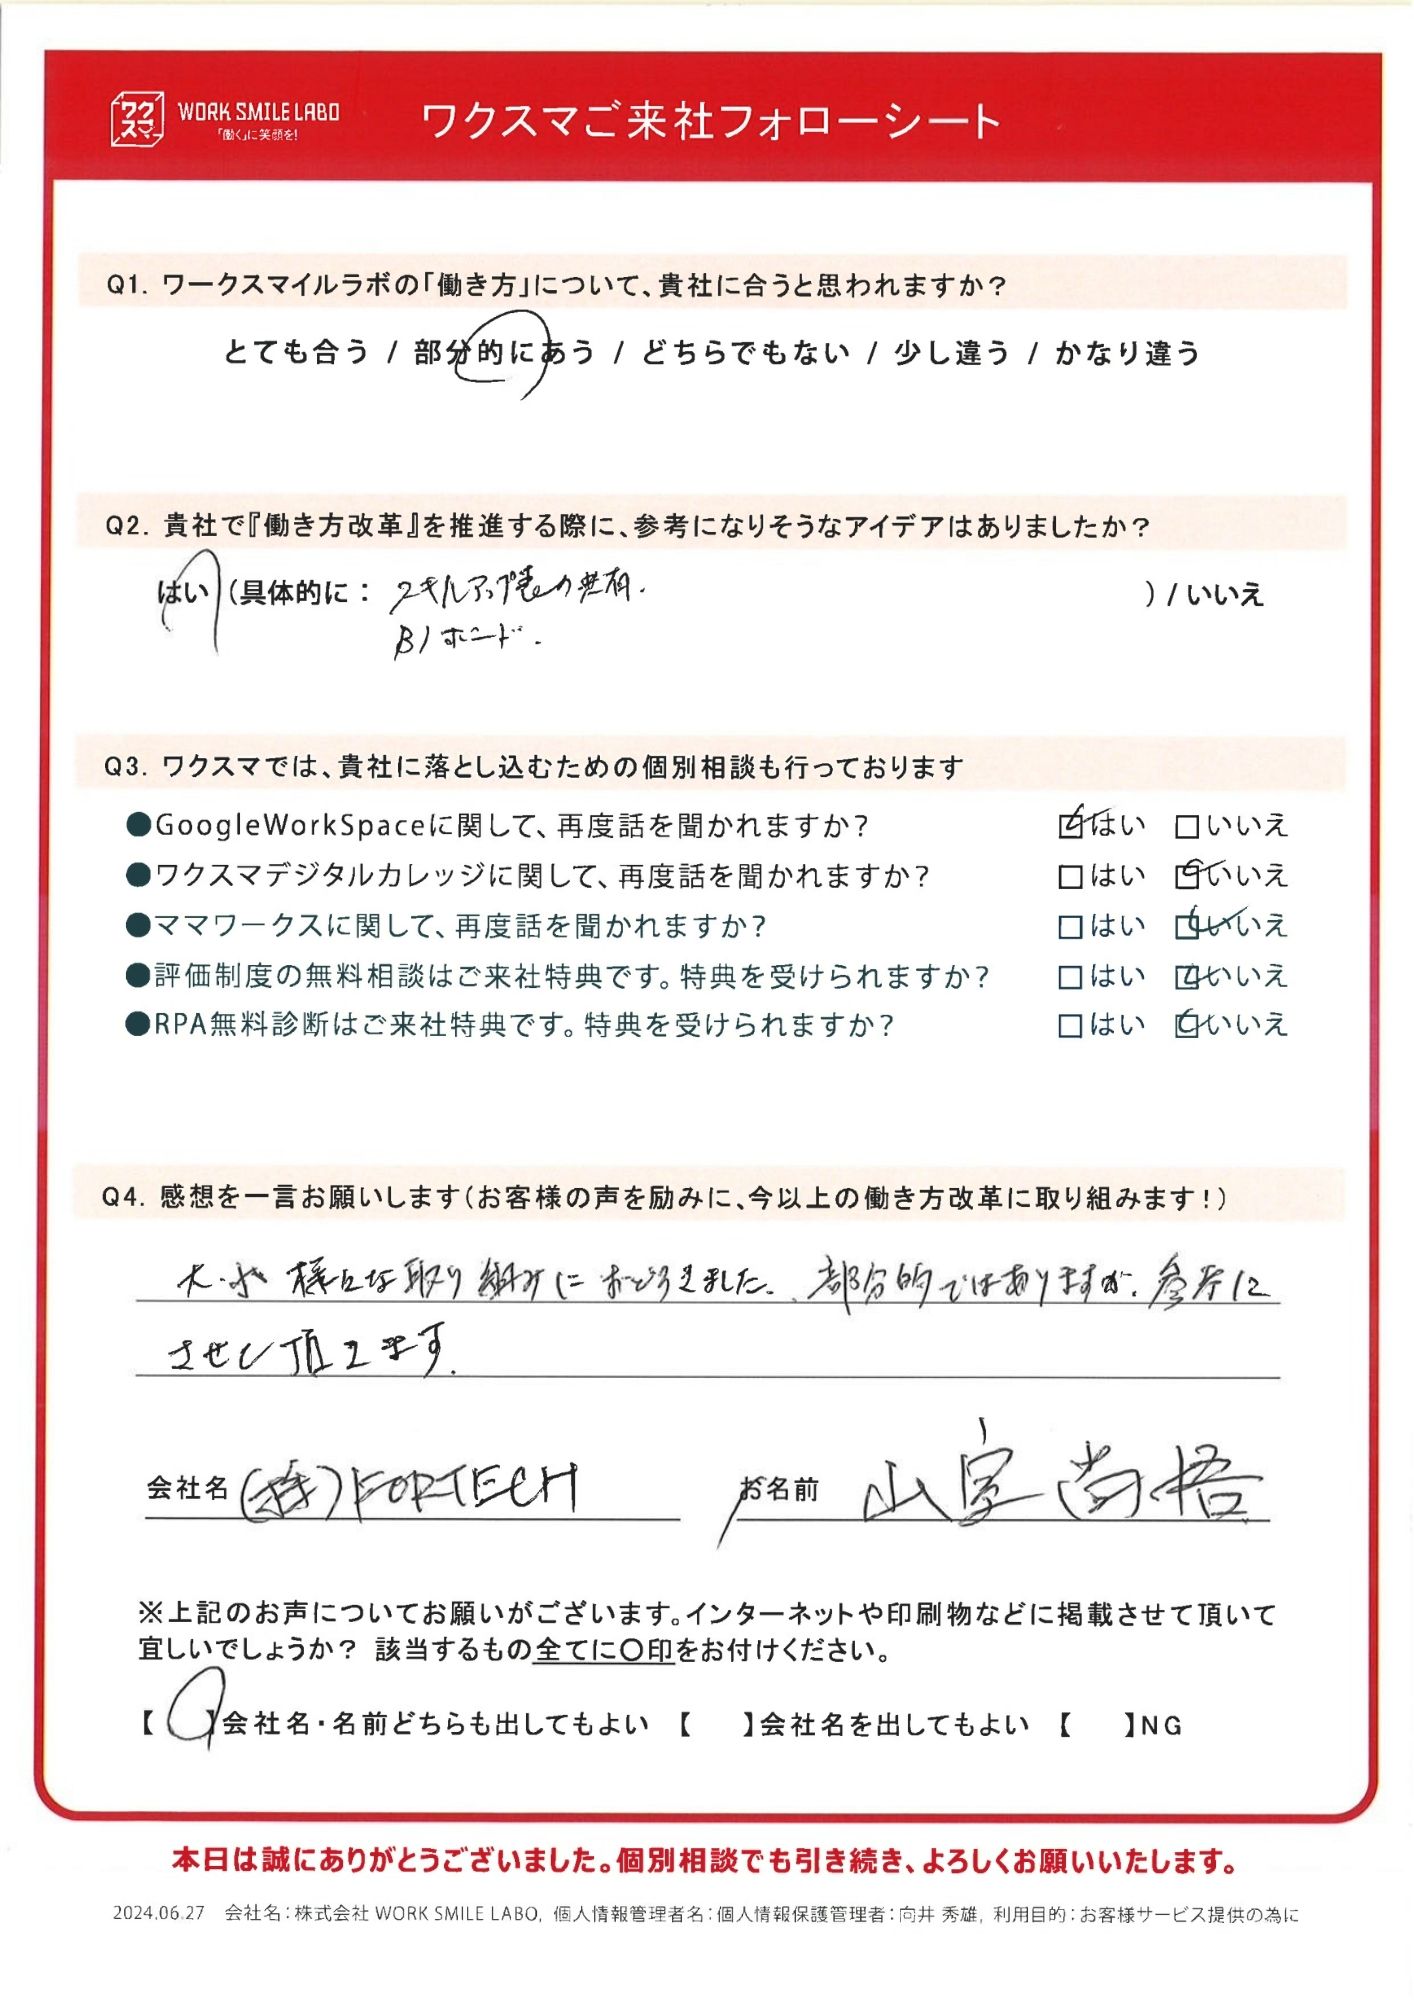 ワクスマ WORK SMILE LABO 「働く」に笑顔を! ワクスマご来社フォローシート
Q1. ワークスマイルラボの「働き方」について、貴社に合うと思われますか？
とても合う / 部分的にあう / どちらでもない / 少し違う / かなり違う
Q2. 貴社で『働き方改革』を推進する際に、参考になりそうなアイデアはありましたか？
はい (具体的に： スキルアップ表の共有. ) / いいえ
ボード.
Q3. ワクスマでは、貴社に落とし込むための個別相談も行っております
●GoogleWorkSpaceに関して、再度話を聞かれますか？ □はい □いいえ
●ワクスマデジタルカレッジに関して、再度話を聞かれますか？ □はい □いいえ
●ママワークスに関して、再度話を聞かれますか？ □はい □いいえ
●評価制度の無料相談はご来社特典です。特典を受けられますか？ □はい □いいえ
●RPA無料診断はご来社特典です。特典を受けられますか？ □はい □いいえ
Q4. 感想を一言お願いします(お客様の声を励みに、今以上の働き方改革に取り組みます！)
様々な取り組みにおどろきました。部分的ではありますが、参考に
させて頂きます.
会社名 (株)FORTECH お名前 山室 尚悟
※上記のお声についてお願いがございます。インターネットや印刷物などに掲載させて頂いて
宜しいでしょうか？ 該当するもの全てに〇印をお付けください。
【 】会社名・名前どちらも出してもよい 【 】会社名を出してもよい 【 】NG
本日は誠にありがとうございました。個別相談でも引き続き、よろしくお願いいたします。
2024.06.27 会社名：株式会社 WORK SMILE LABO, 個人情報管理者名：個人情報保護管理者：向井 秀雄, 利用目的：お客様サービス提供の為に